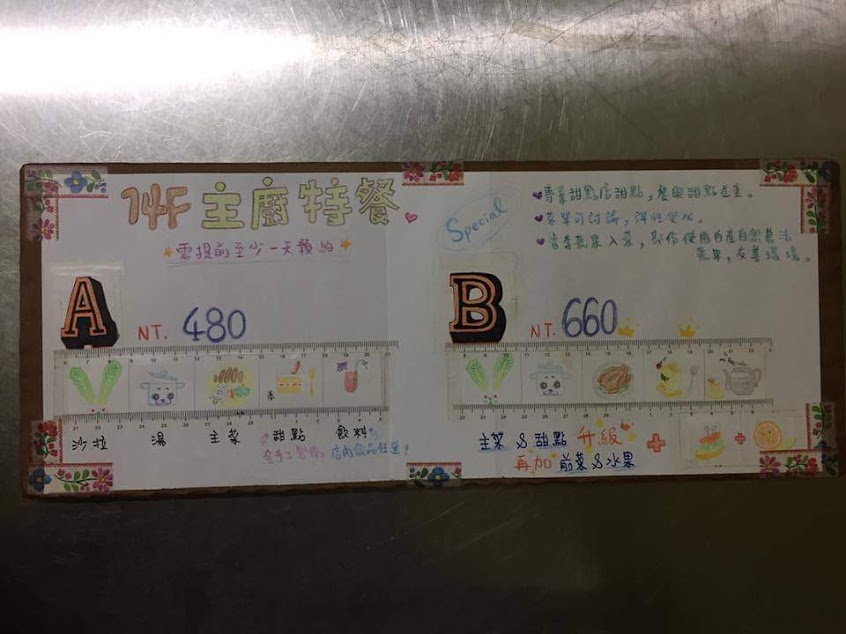 14F 主廚特餐
需提前至少一天預約
Special
專業甜點店甜點,餐與甜點並重。
菜單可討論,彈性變化。
當季蔬果入菜,部份使用自產自然農法
蔬果,友善環境。
A NT. 480
沙拉 湯 主菜 甜點 飲料
全手工製作 店內飲品任選!
B NT. 660
主菜 & 甜點 升級 +
+
再加 前菜 & 水果